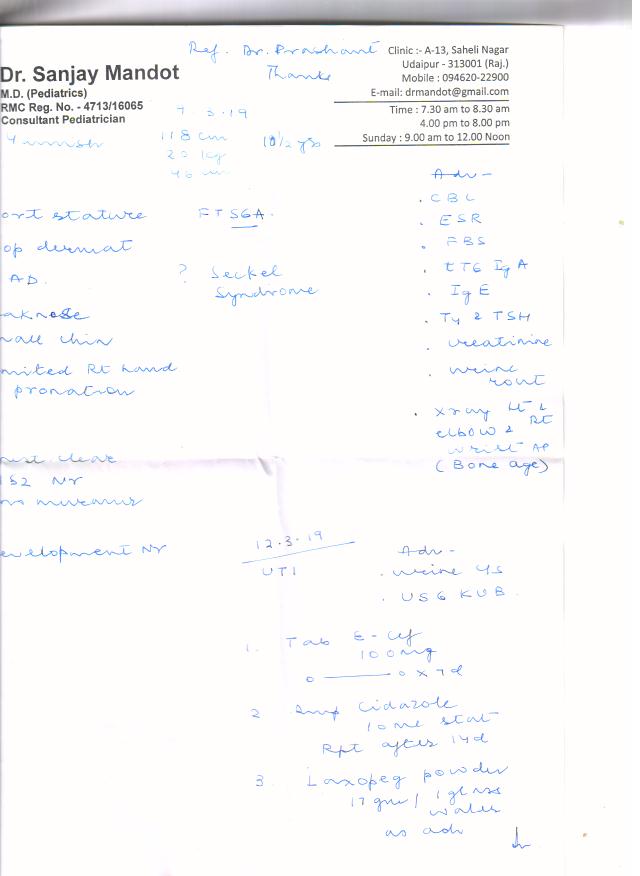 Ref. Dr. Prashant
Thanks
Clinic :- A-13, Saheli Nagar
Udaipur - 313001 (Raj.)
Mobile : 094620-22900
E-mail: drmandot@gmail.com
Time : 7.30 am to 8.30 am
4.00 pm to 8.00 pm
Sunday : 9.00 am to 12.00 Noon
Dr. Sanjay Mandot
M.D. (Pediatrics)
RMC Reg. No. - 4713/16065
Consultant Pediatrician
7 3.19
118 cm 10 1/2 yrs
20 kg
46 cm
Adv -
. CBC
. ESR
. FBS
. tTG IgA
. IgE
. T4 & TSH
. creatinine
. urine
rout
. xray Lt & Rt
elbow &
wrist AP
(Bone age)
ort stature FTSGA.
op dermat
AD. ? Seckel
Syndrome
aknese
mall chin
mited Rt hand
pronation
clear
S2 Nr
murmur
evelopment Nr
12.3.19
UTI
Adv -
. urine
. USG KUB.
1. Tab E-Cef
100mg
o — o x 7d
2 Cidazole
10 ml stat
Rpt after 14d
3. Laxopeg powder
17 gm / 1 glass
water
as adv